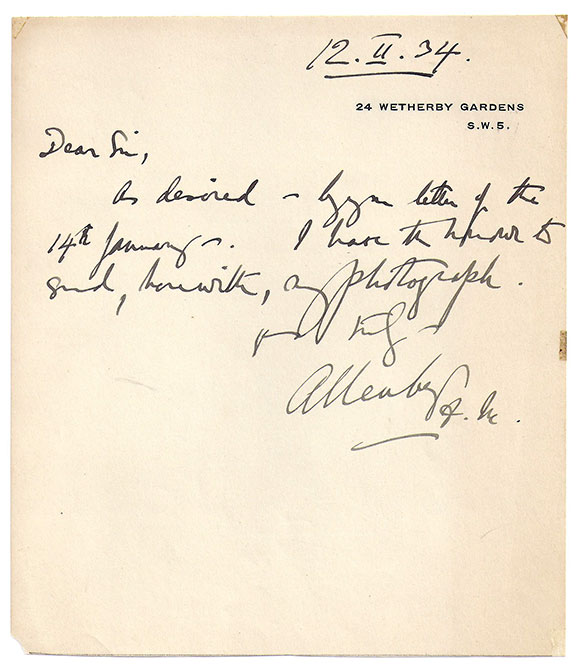 12.II.34.
24 WETHERBY GARDENS
S.W.5.
Dear Sir,
As desired - by your letter of the
14th January -. I have the honour to
send, herewith, my photograph.
Yours truly
Allenby F.M.